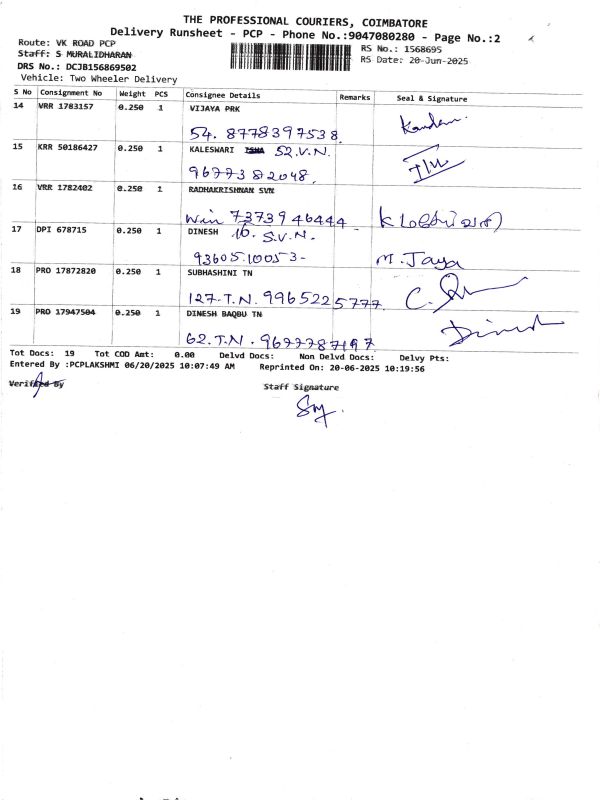 THE PROFESSIONAL COURIERS, COIMBATORE
Delivery Runsheet - PCP - Phone No.:9047080280 - Page No.:2
Route: VK ROAD PCP
RS No.: 1568695
Staff: S MURALIDHARAN
RS Date: 20-Jun-2025
DRS No.: DCJB156869502
Vehicle: Two Wheeler Delivery
S No Consignment No Weight PCS Consignee Details Remarks Seal & Signature
14 VRR 1783157 0.250 1 VIJAYA PRK
54. 8778397538
15 KRR 50186427 0.250 1 KALESWARI 52.V.N.
9677382048.
16 VRR 1782402 0.250 1 RADHAKRISHNAN SVN
Win 7373946444
17 DPI 678715 0.250 1 DINESH 16. S.V.N.
9360510053- M. Jaya
18 PRO 17872820 0.250 1 SUBHASHINI TN
127.T.N. 9965225777
19 PRO 17947504 0.250 1 DINESH BAQBU TN
62.T.N. 9677787197 Dinesh
Tot Docs: 19 Tot COD Amt: 0.00 Delvd Docs: Non Delvd Docs: Delvy Pts:
Entered By :PCPLAKSHMI 06/20/2025 10:07:49 AM Reprinted On: 20-06-2025 10:19:56
Verified By Staff Signature